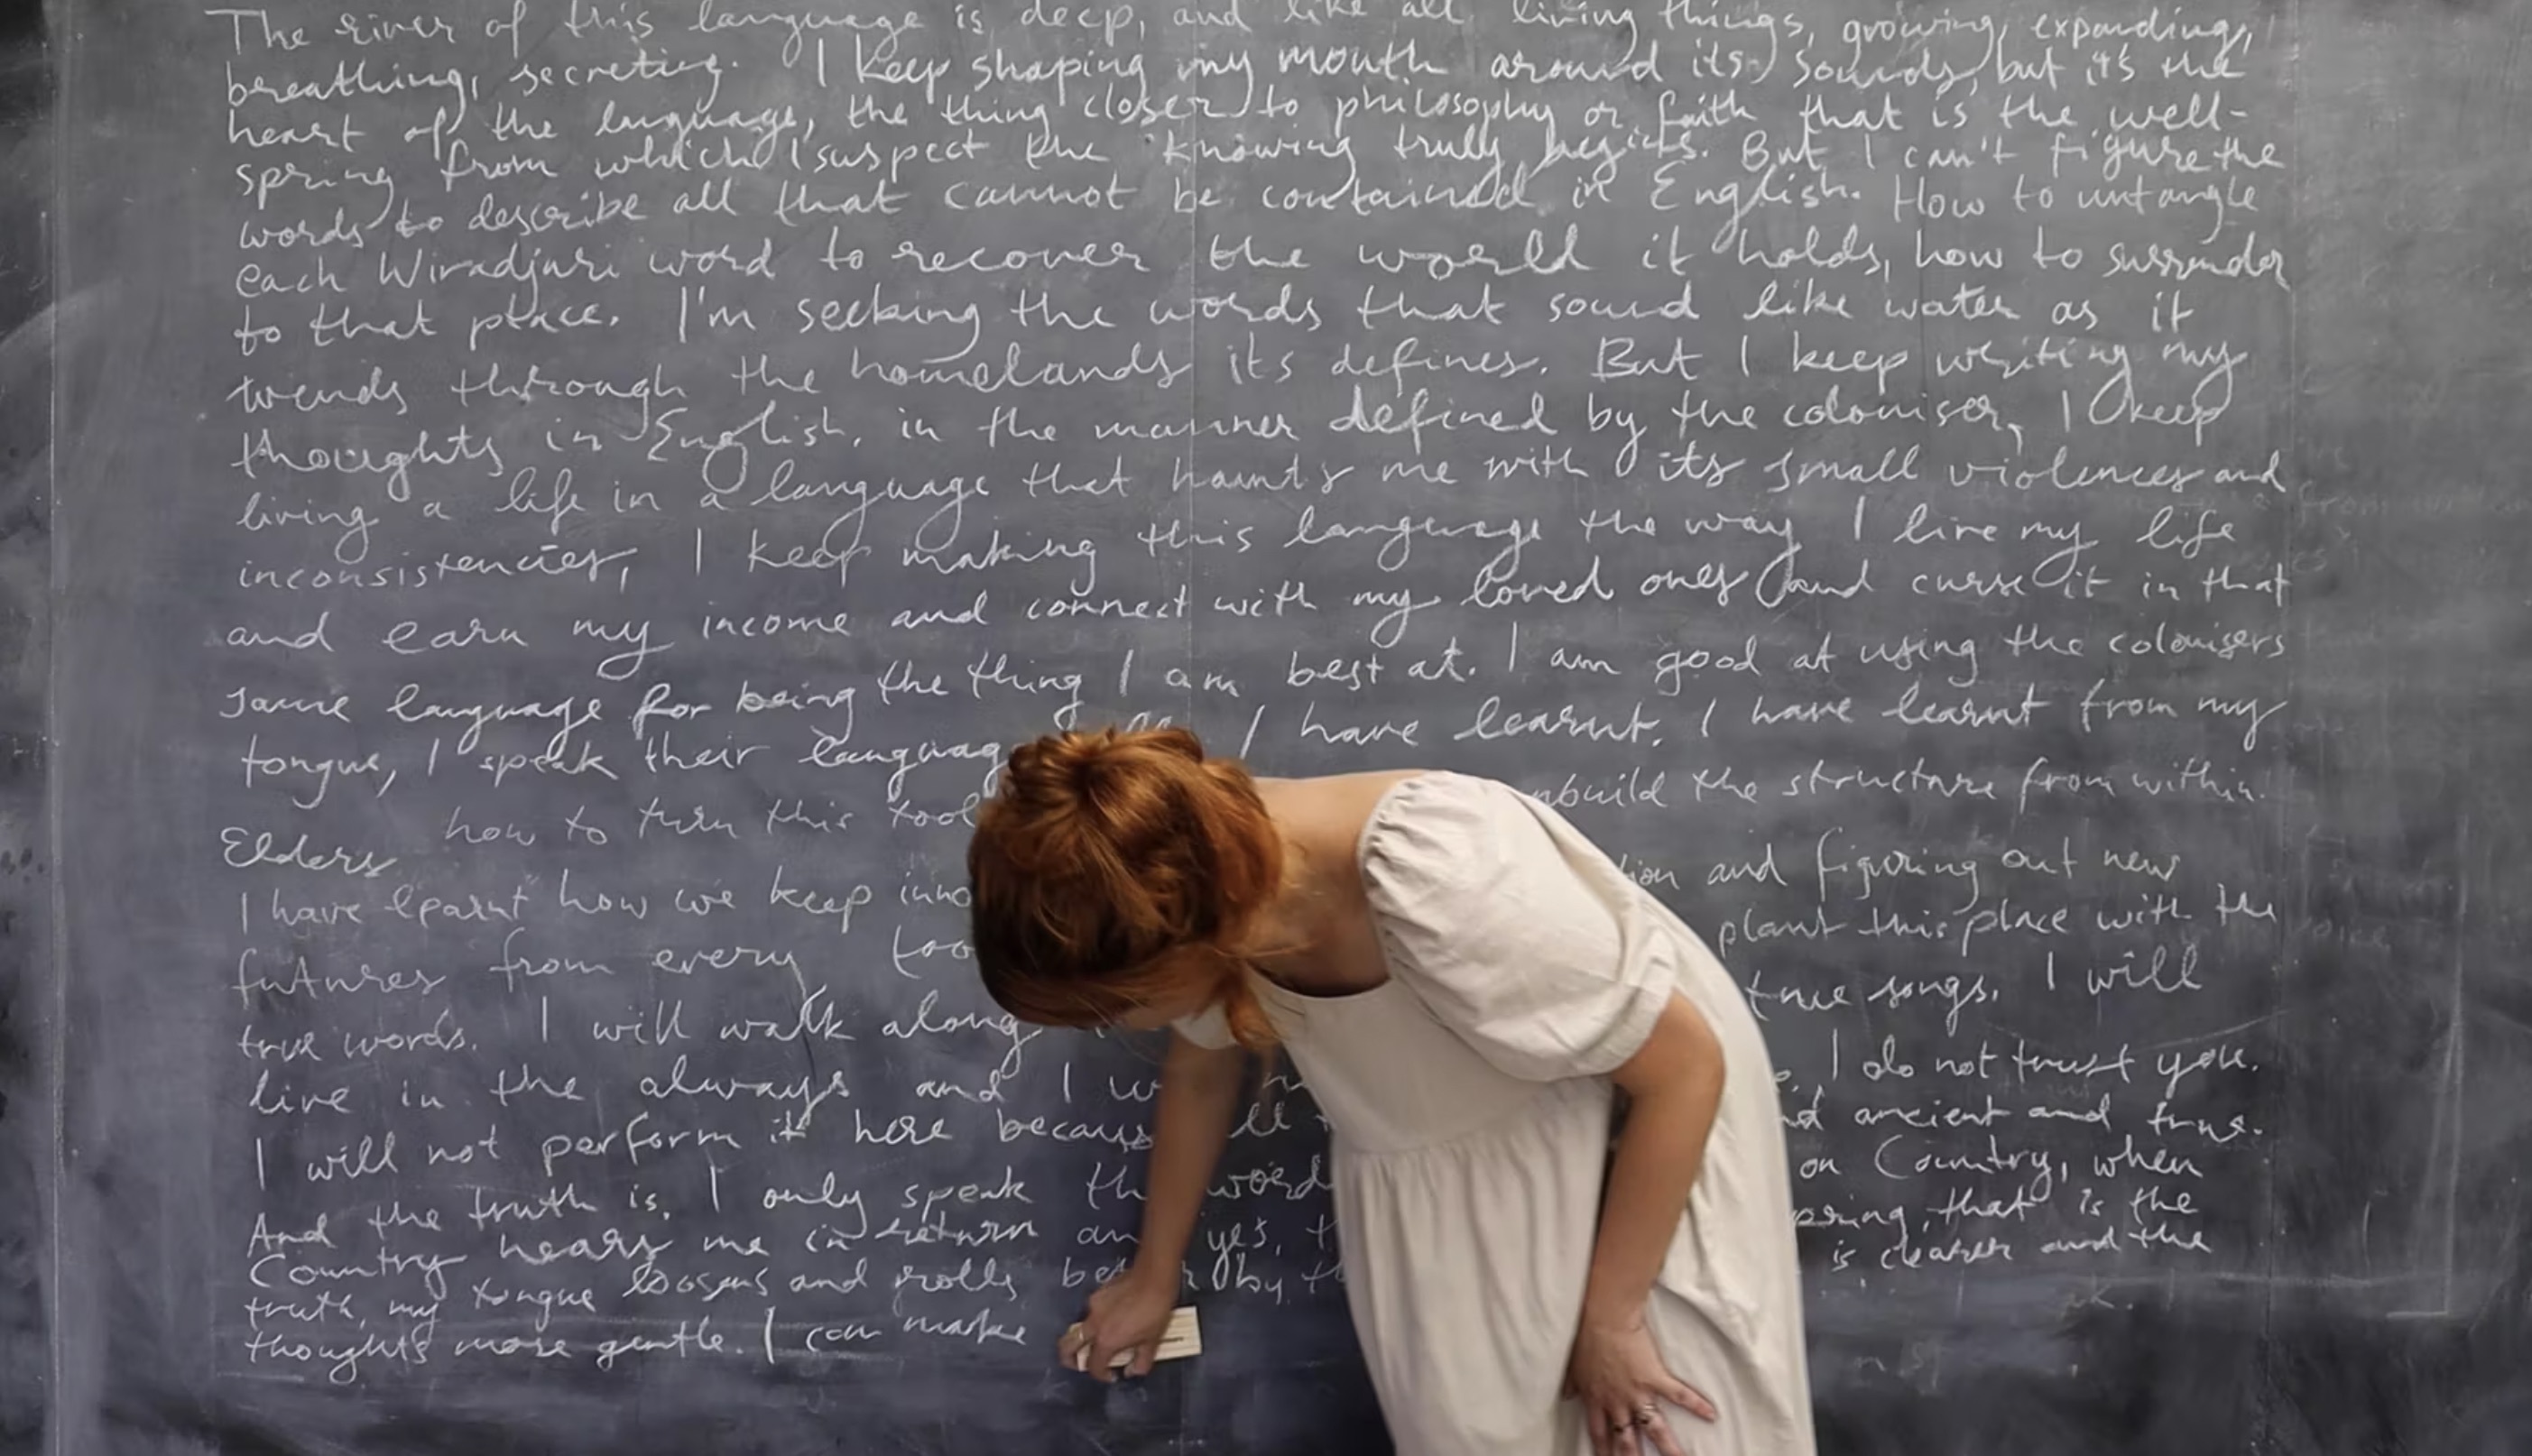 The river of this language is deep, and like all living things, growing, expanding,
breathing, secreting. I keep shaping my mouth around its sounds, but it's the
heart of the language, the thing closer to philosophy or faith that is the well-
spring from which I suspect the knowing truly begins. But I can't figure the
words to describe all that cannot be contained in English. How to untangle
each Wiradjuri word to recover the world it holds, how to surrender
to that place. I'm seeking the words that sound like water as it
wends through the homelands its defines. But I keep writing my
thoughts in English, in the manner defined by the coloniser, I keep
living a life in a language that haunts me with its small violences and
inconsistencies, I keep making this language the way I live my life
and earn my income and connect with my loved ones and curse it in that
same language for being the thing I am best at. I am good at using the colonisers
tongue, I speak their I have learnt. I have learnt from my
Elders how to turn this tool the structure from within.
I have learnt how we keep and figuring out new
futures from every plant this place with the
true words. I will walk along true songs. I will
live in the always and I I do not trust you.
I will not perform it here ancient and true.
And the truth is, I only speak on Country, when
Country hears me in return yes, that is the
truth, my tongue loosens and rolls by is clearer and the
thoughts more gentle. I can make